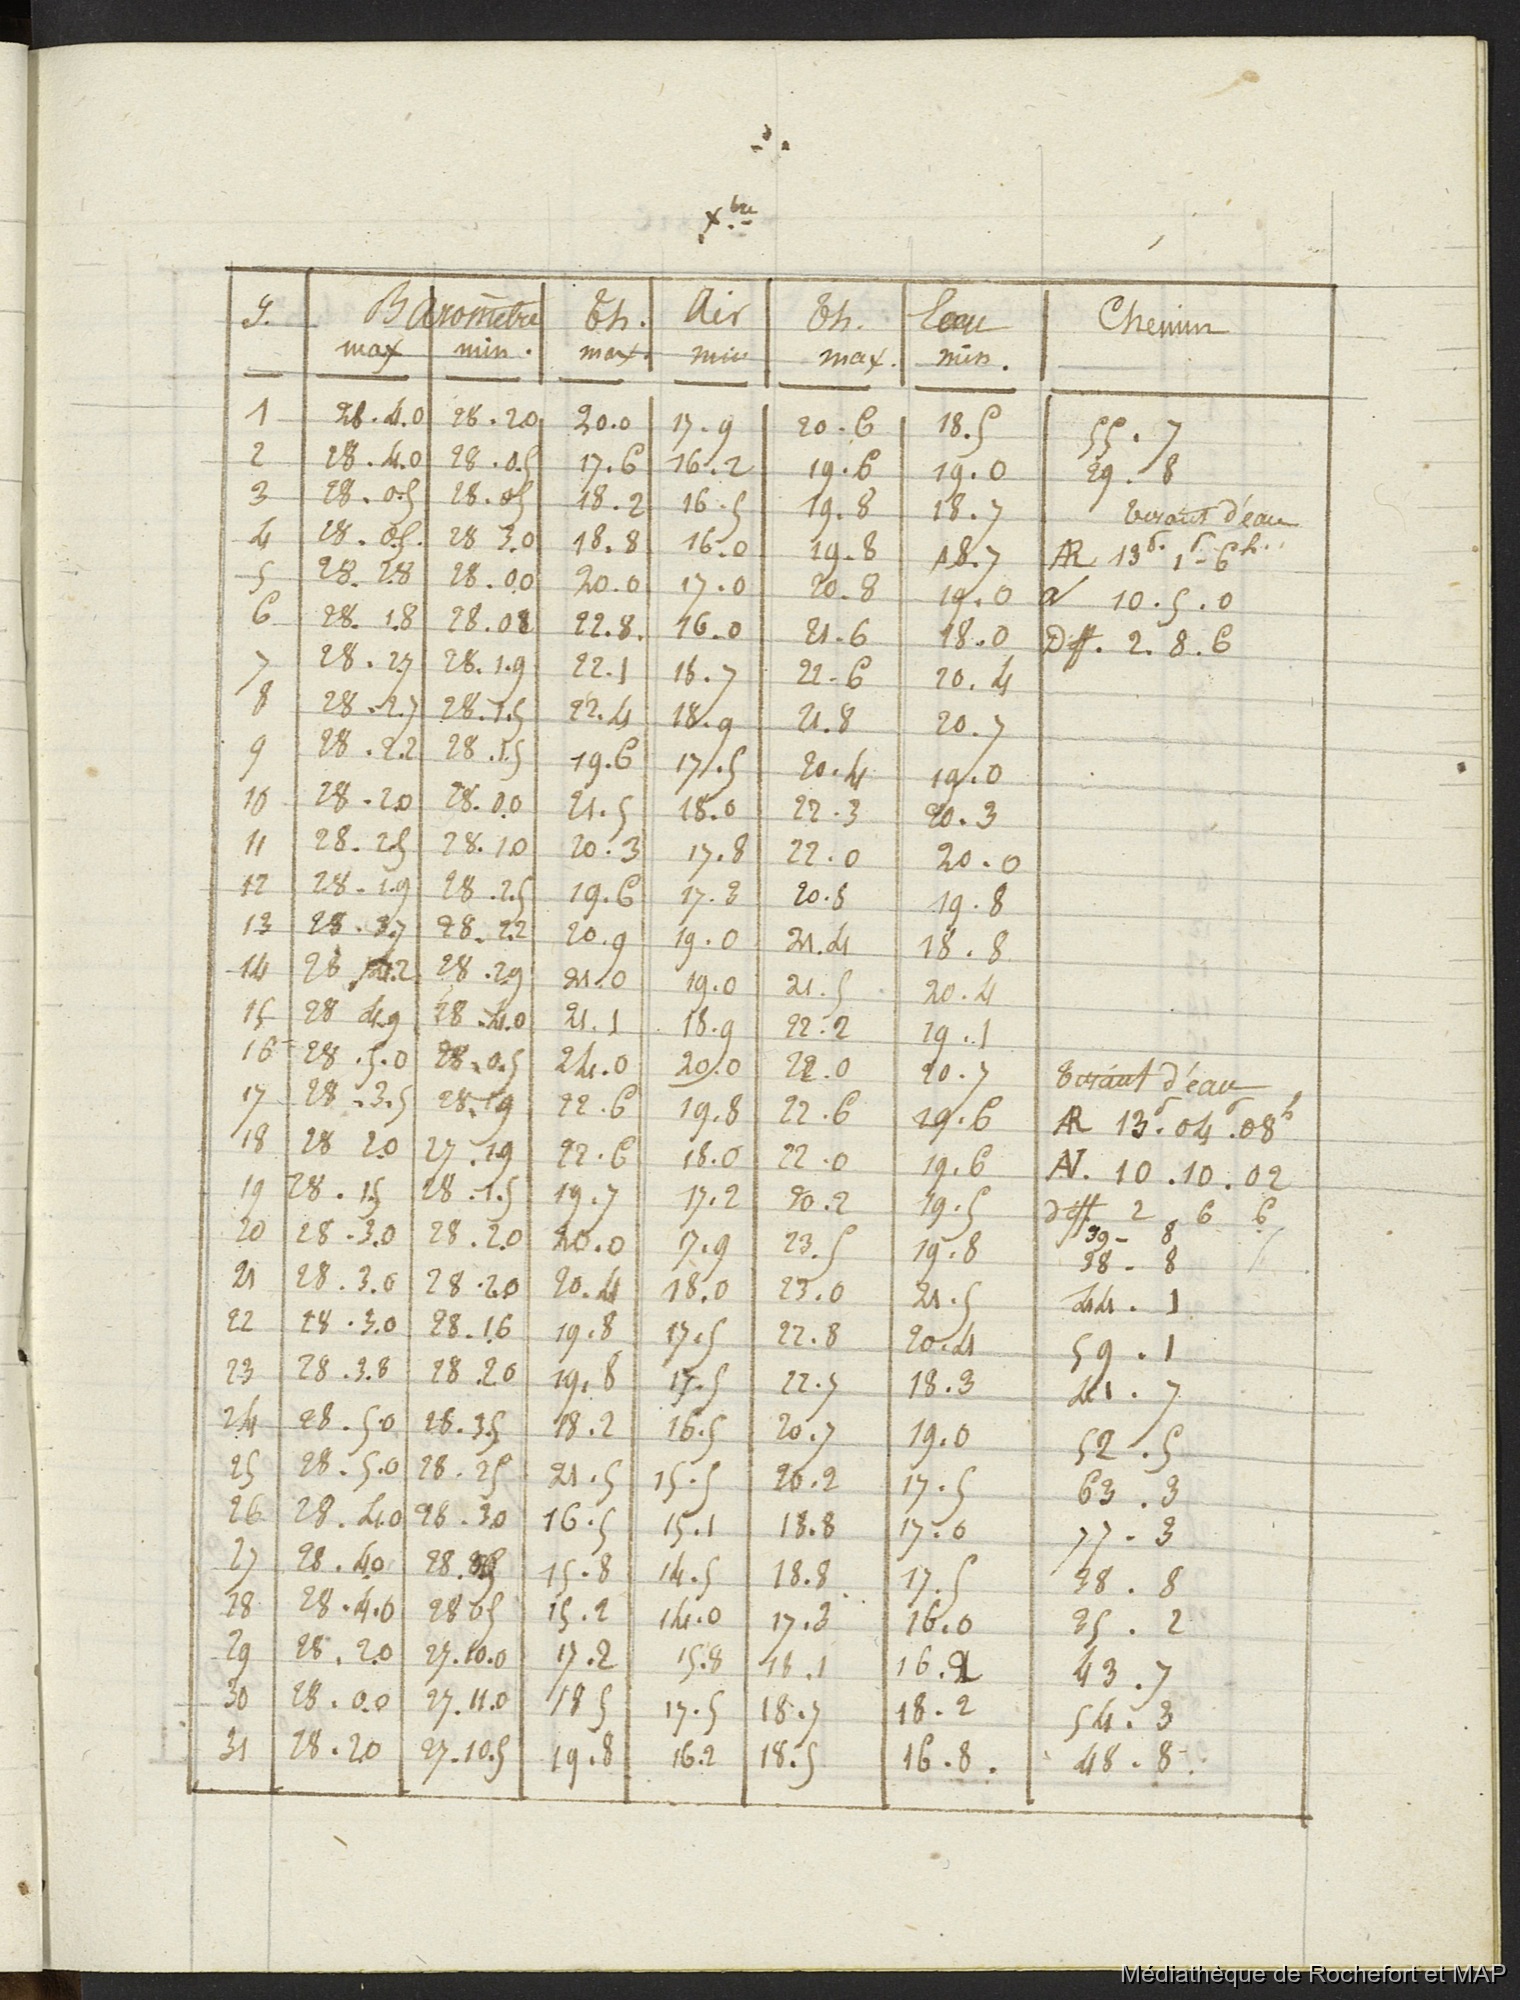 Xbre
J. Baromètre Th. Air Th. l'eau Chemin
max min. max. min max. min.
1 28.4.0 28.2.0 20.0 17.9 20.6 18.5 55.7
2 28.4.0 28.0.5 17.6 16.2 19.6 19.0 29.8
3 28.0.5 28.0.5 18.2 16.5 19.8 18.7 tirant d'éau
4 28.0.5. 28 3.0 18.8 16.0 19.8 18.7 AR 13 1 6
5 28.2.8 28.0.0 20.0 17.0 20.8 19.0 10.5.0
6 28.1.8 28.0.8 22.8. 16.0 21.6 18.0 Diff. 2.8.6
7 28.2.7 28.1.9 22.1 18.7 22.6 20.4
8 28.2.7 28.1.5 22.4 18.9 21.8 20.7
9 28.2.2 28.1.5 19.6 17.5 20.4 19.0
10 28.2.0 28.0.0 21.5 18.0 22.3 20.3
11 28.2.5 28.1.0 20.3 17.8 22.0 20.0
12 28.1.9 28.2.5 19.6 17.3 20.5 19.8
13 28.3.7 28.2.2 20.9 19.0 21.4 18.8
14 28 28.2.9 21.0 19.0 21.5 20.4
15 28 4.9 28.4.0 21.1 18.9 22.2 19.1
16 28.5.0 28.0.5 24.0 20.0 22.0 20.7 tirant d'éau
17 28.3.5 28.1.9 22.6 19.8 22.6 19.6 AR 13.04.08
18 28 2.0 27.1.9 22.6 18.0 22.0 19.6 AV. 10.10.02
19 28.1.5 28.1.5 19.7 17.2 20.2 19.5 diff. 2 6 6
39 - 8
20 28.3.0 28.2.0 20.0 17.9 23.5 19.8 38.8
21 28.3.0 28.2.0 20.4 18.0 23.0 21.5 44.1
22 28.3.0 28.1.6 19.8 17.5 22.8 20.4 59.1
23 28.3.8 28.2.0 19.8 17.5 22.7 18.3 41.7
24 28.5.0 28.3.5 18.2 16.5 20.7 19.0 52.5
25 28.5.0 28.2.5 21.5 15.5 20.2 17.5 63.3
26 28.4.0 28.3.0 16.5 15.1 18.8 17.0 77.3
27 28.4.0 28. 15.8 14.5 18.8 17.5 38.8
28 28.4.0 28 0.5 15.2 14.0 17.3 16.0 35.2
29 28.2.0 27.10.0 17.2 15.8 18.1 16.2 43.7
30 28.0.0 27.11.0 18 5 17.5 18.7 18.2 54.3
31 28.2.0 27.10.5 19.8 16.2 18.5 16.8. 48.8.
Médiathèque de Rochefort et MAP